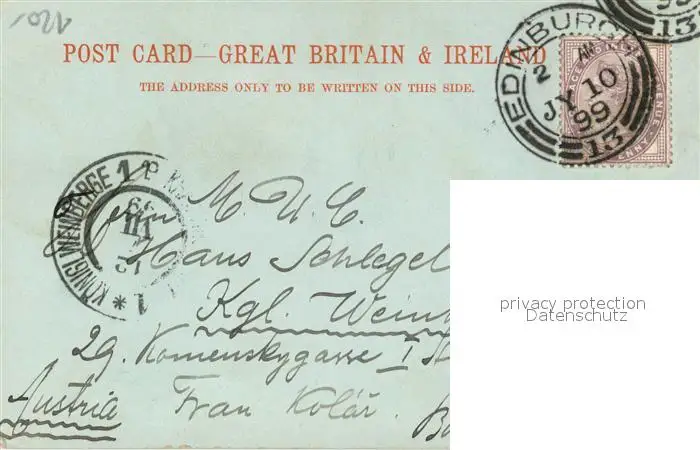 1021
POST CARD—GREAT BRITAIN & IRELAND
THE ADDRESS ONLY TO BE WRITTEN ON THIS SIDE.
EDINBURGH
2 AM
JY 10
99
13
13
KÖNIGL. WEINBERGE 1
Herrn M. U. C.
Hans Schlegel
Kgl. Wein
29. Komenskygasse I
Austria Frau Kolár.
privacy protection
Datenschutz